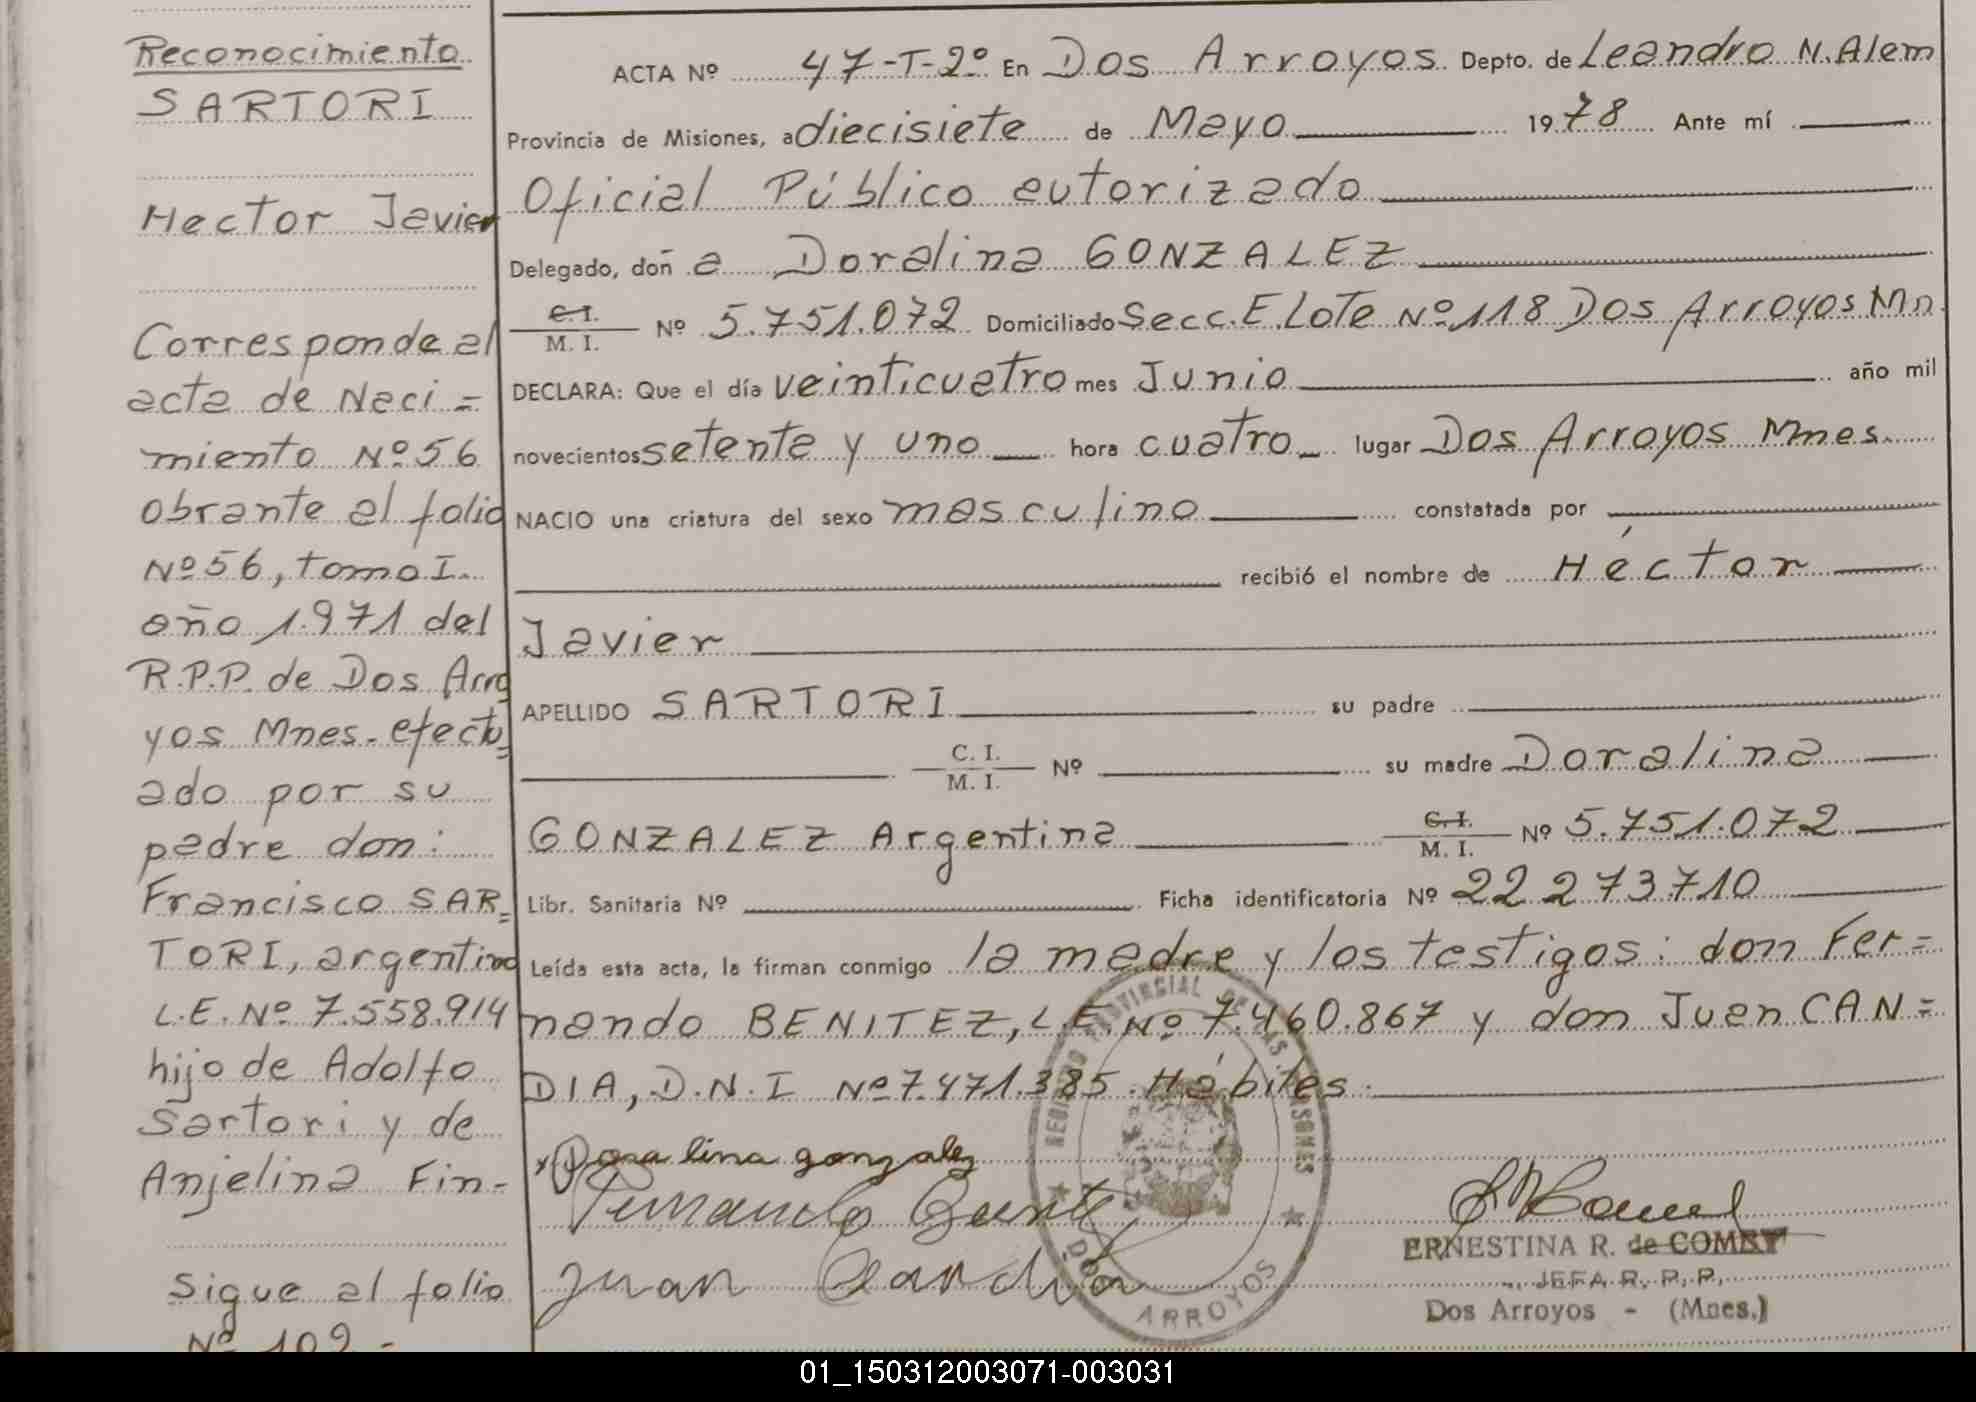 Reconocimiento
SARTORI
Hector Javier
Corresponde al
acta de Naci=
miento Nº 56
obrante al folio
Nº 56, tomo I.
año 1.971 del
R.P.P. de Dos Arro
yos Mnes. efectu=
ado por su
padre don:
Francisco SAR=
TORI, argentino
L.E. Nº 7.558.914
hijo de Adolfo
Sartori y de
Anjelina Fin-
Sigue al folio
Nº 109.-
ACTA Nº 47-T-2º En Dos Arroyos Depto. de Leandro N. Alem
Provincia de Misiones, a diecisiete de Mayo 1978 Ante mí
Oficial Público autorizado
Delegado, doña Doralina GONZALEZ
C.I.
M. I. Nº 5.751.072 Domiciliado Secc. E Lote Nº 118 Dos Arroyos Mn.
DECLARA: Que el día veinticuatro mes Junio año mil
novecientos setenta y uno hora cuatro lugar Dos Arroyos Mnes.
NACIO una criatura del sexo masculino constatada por
recibió el nombre de Héctor
Javier
APELLIDO SARTORI su padre
C. I.
M. I. Nº su madre Doralina
GONZALEZ Argentina C.I.
M. I. Nº 5.751.072
Libr. Sanitaria Nº Ficha identificatoria Nº 22.273.710
Leída esta acta, la firman conmigo la madre y los testigos: don Fer=
nando BENITEZ, L.E. Nº 7.460.867 y don Juan CAN=
DIA, D.N.I Nº 7.471.385. Hábiles.
x Doralina gonzalez
Juan Candia
REGISTRO PROVINCIAL DE LAS PERSONAS
DOS ARROYOS
ERNESTINA R. de COMBY
JEFA R. P. P.
Dos Arroyos - (Mnes.)
01_150312003071-003031